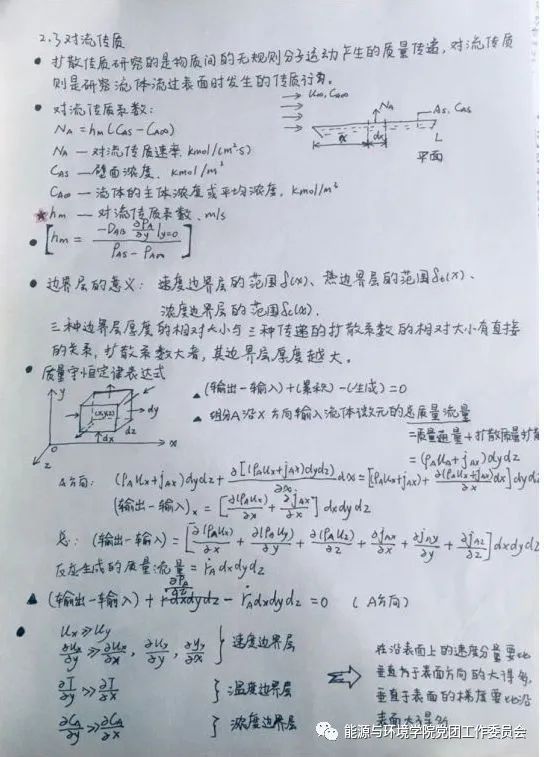 2.3 对流传质
• 扩散传质研究的是物质间的无规则分子运动产生的质量传递，对流传质
则是研究流体流过表面时发生的传质行为。
• 对流传质系数：
u∞, CA∞
NA
As, CAS
x
dx
L
平面
NA = hm (CAS − CA∞)
NA — 对流传质速率, kmol/(m²s)
CAS — 壁面浓度, kmol/m³
CA∞ — 流体的主体浓度或平均浓度, kmol/m³
★ hm — 对流传质系数, m/s
• [hm = (−DAB ∂ρA/∂y |y=0) / (ρAS − ρA∞)]
• 边界层的意义： 速度边界层的范围δ(x)、热边界层的范围δt(x)、
浓度边界层的范围δc(x).
三种边界层厚度的相对大小与三种传递的扩散系数的相对大小有直接
的关系, 扩散系数大者, 其边界层厚度越大。
• 质量守恒定律表达式
y
(x,y,z)
dy
dz
dx
x
z
0
▲ (输出−输入)+(累积)−(生成)=0
▲ 组分A沿x方向输入流体微元的总质量流量
=质量通量+扩散质量扩
= (ρAux+jAx)dydz
A方向: (ρAux+jAx)dydz + ∂[(ρAux+jAx)dydz]/∂x dx = [(ρAux+jAx) + ∂(ρAux+jAx)/∂x dx] dydz
(输出−输入)x = [∂(ρAux)/∂x + ∂jAx/∂x] dxdydz
总: (输出−输入) = [∂(ρAux)/∂x + ∂(ρAuy)/∂y + ∂(ρAuz)/∂z + ∂jAx/∂x + ∂jAy/∂y + ∂jAz/∂z] dxdydz
反应生成的质量流量 = ṙA dxdydz
▲ (输出−输入) + dxdydz − ṙA dxdydz = 0 (A方向)
• ux ≫ uy
∂ux/∂y ≫ ∂ux/∂x, ∂uy/∂y, ∂uy/∂x } 速度边界层
∂T/∂y ≫ ∂T/∂x } 温度边界层
∂CA/∂y ≫ ∂CA/∂x } 浓度边界层
⇒ 在沿表面上的速度分量要比
垂直于表面方向的大得多,
垂直于表面的梯度要比沿
表面大得多
能源与环境学院党团工作委员会